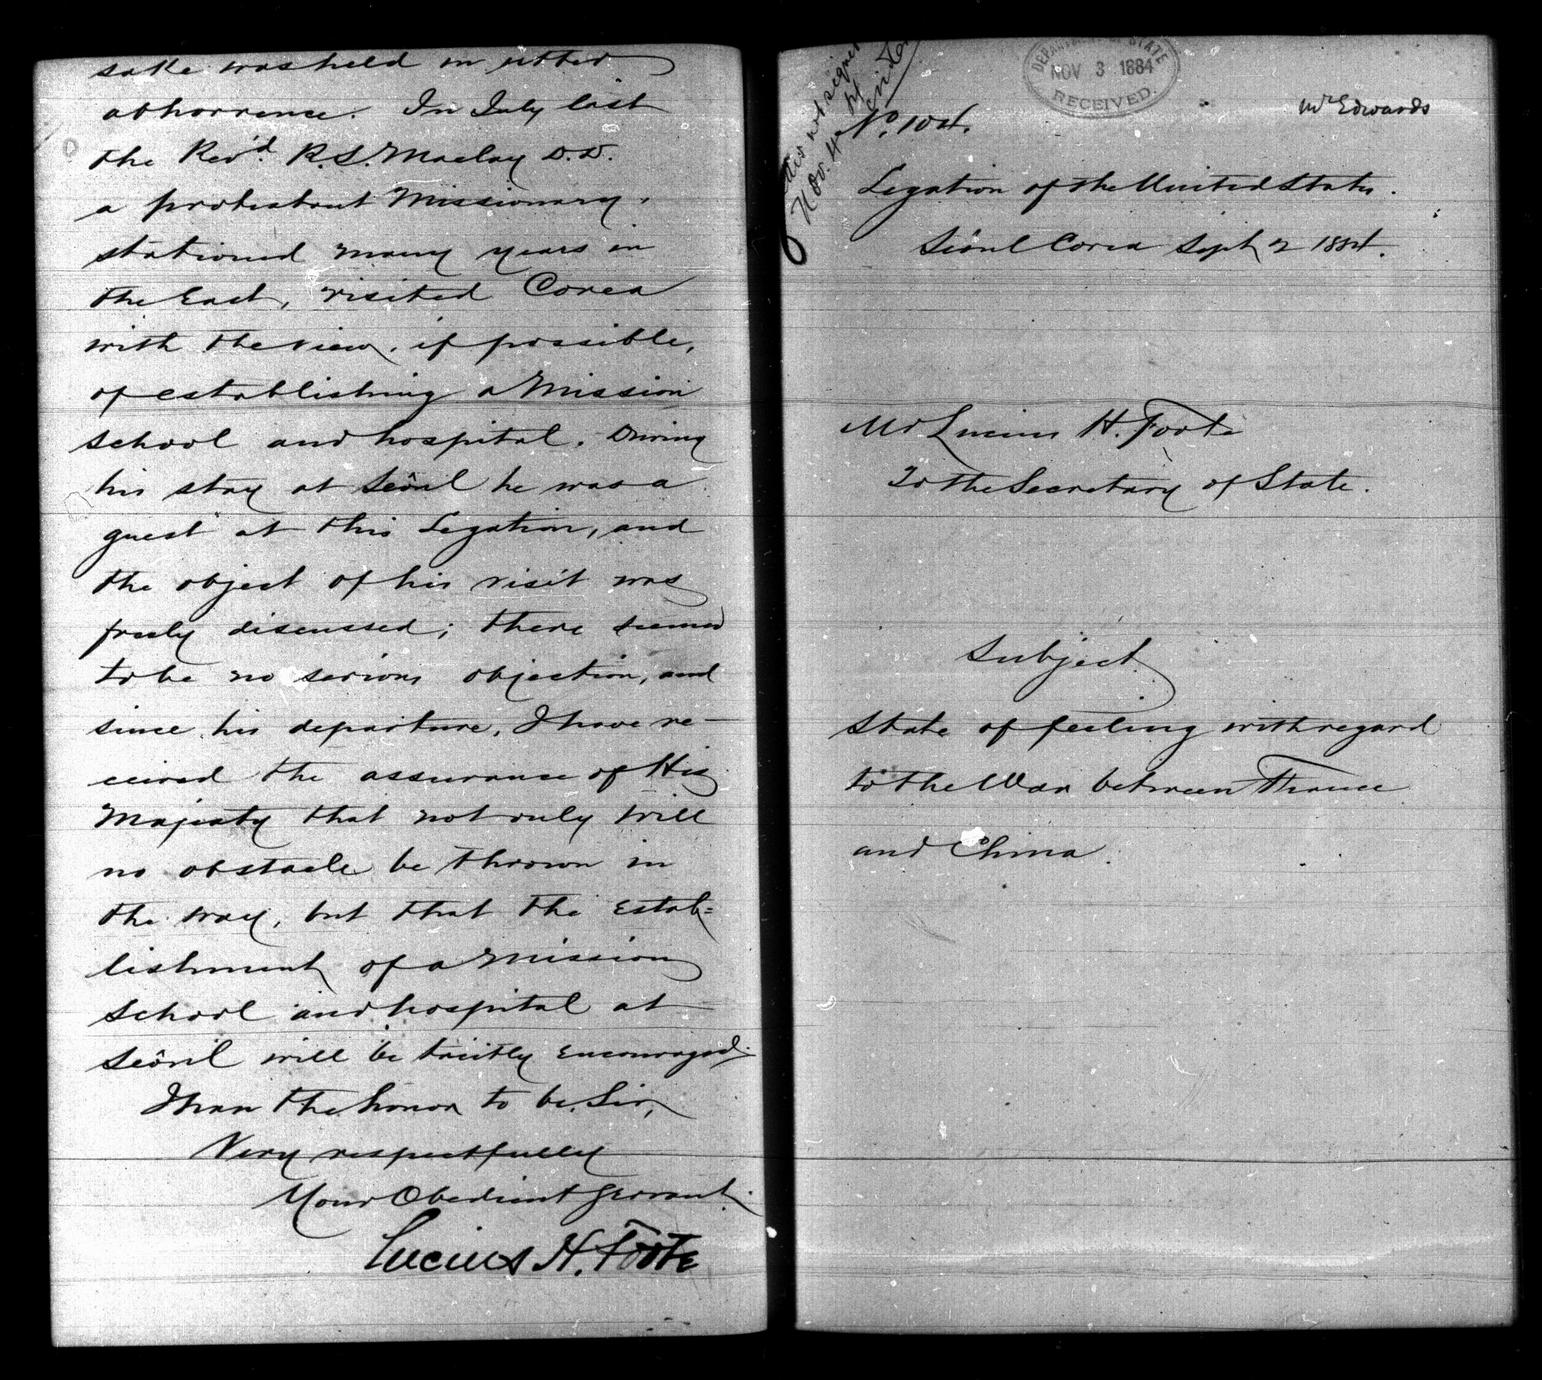 sake was held in utter
abhorrence. In July last
the Rev'd. R. S. Maclay D.D.
a protestant Missionary,
stationed many years in
the East, visited Corea
with the view, if possible,
of establishing a Mission
school and hospital. During
his stay at Séoul he was a
guest at this Legation, and
the object of his visit was
freely discussed; there seemed
to be no serious objection, and
since his departure, I have re-
ceived the assurance of His
Majesty that not only will
no obstacle be thrown in
the way, but that the estab=
lishment of a Mission
School and hospital at
Séoul will be tacitly encouraged.
I have the honor to be, Sir,
Very respectfully
Your Obedient Servant.
Lucius H. Foote
not
Nov. 4 by
DEPARTMENT OF STATE
NOV 3 1884
RECEIVED.
Mr Edwards
No. 104.
Legation of the United States.
Séoul Corea Sept 2 1884.
Mr Lucius H. Foote
To the Secretary of State.
Subject
State of feeling with regard
to the War between France
and China.